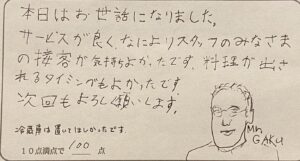 本日はお世話になりました。
サービスが良く、なによりスタッフのみなさま
の接客が気持ちよかったです。料理が出さ
れるタイミングもよかったです。
次回もよろしく願いします。
冷蔵庫は置いてほしかったです。
10点満点で 100 点
Mr.
GAKU